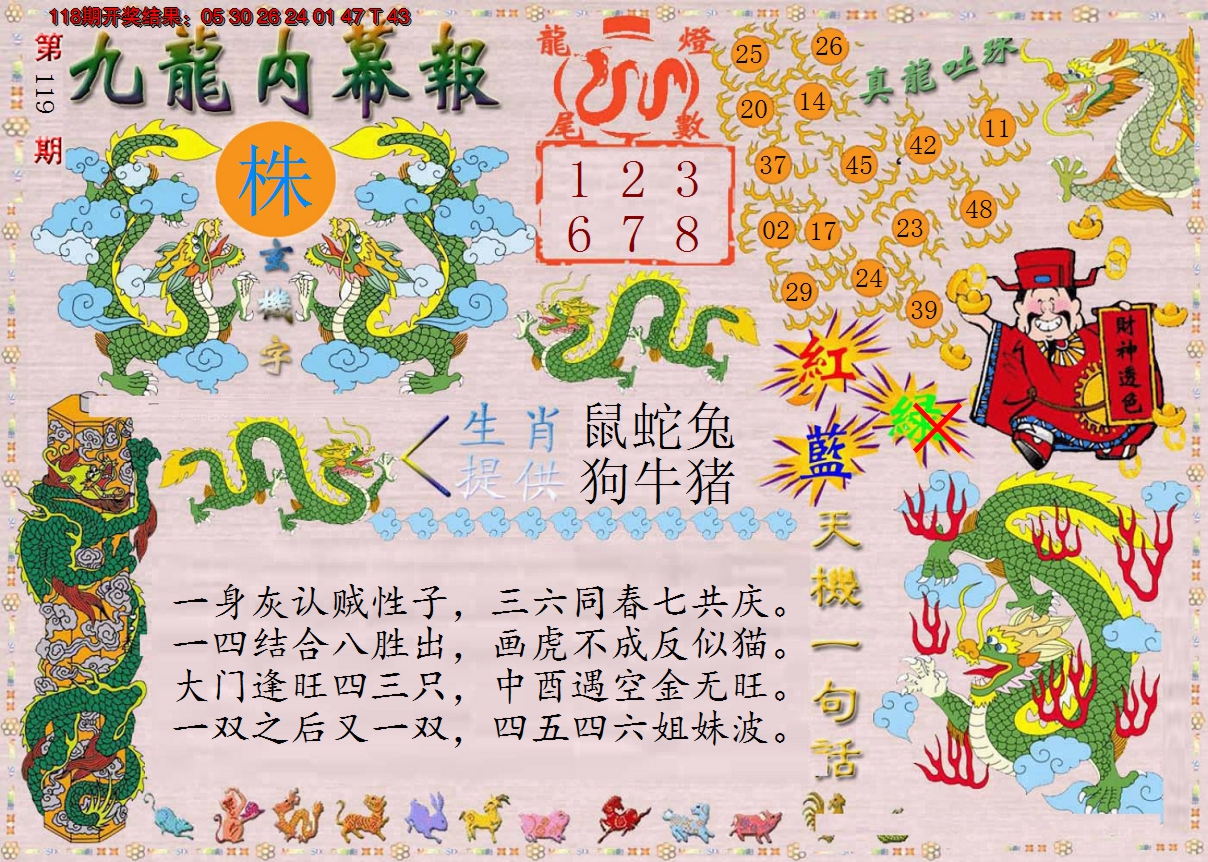 118期开奖结果：05 30 26 24 01 47 T 43
第119期
九龍内幕報
株
玄機字
龍燈尾數
1 2 3
6 7 8
真龍吐珠
25 26
20 14
37 45 42 11
02 17 23 48
29 24 39
財神透色
紅
綠
藍
生肖
提供
鼠蛇兔
狗牛猪
天機一句话
一身灰认贼性子，三六同春七共庆。
一四结合八胜出，画虎不成反似猫。
大门逢旺四三只，中酉遇空金无旺。
一双之后又一双，四五四六姐妹波。